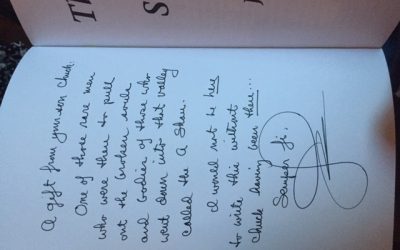 A gift from your son Chuck:
One of those rare men
who were there to pull
out the broken souls
and bodies of those who
went down into that valley
called the A Shau.
I would not be here
to write this without
Chuck having been there...
Semper fi,